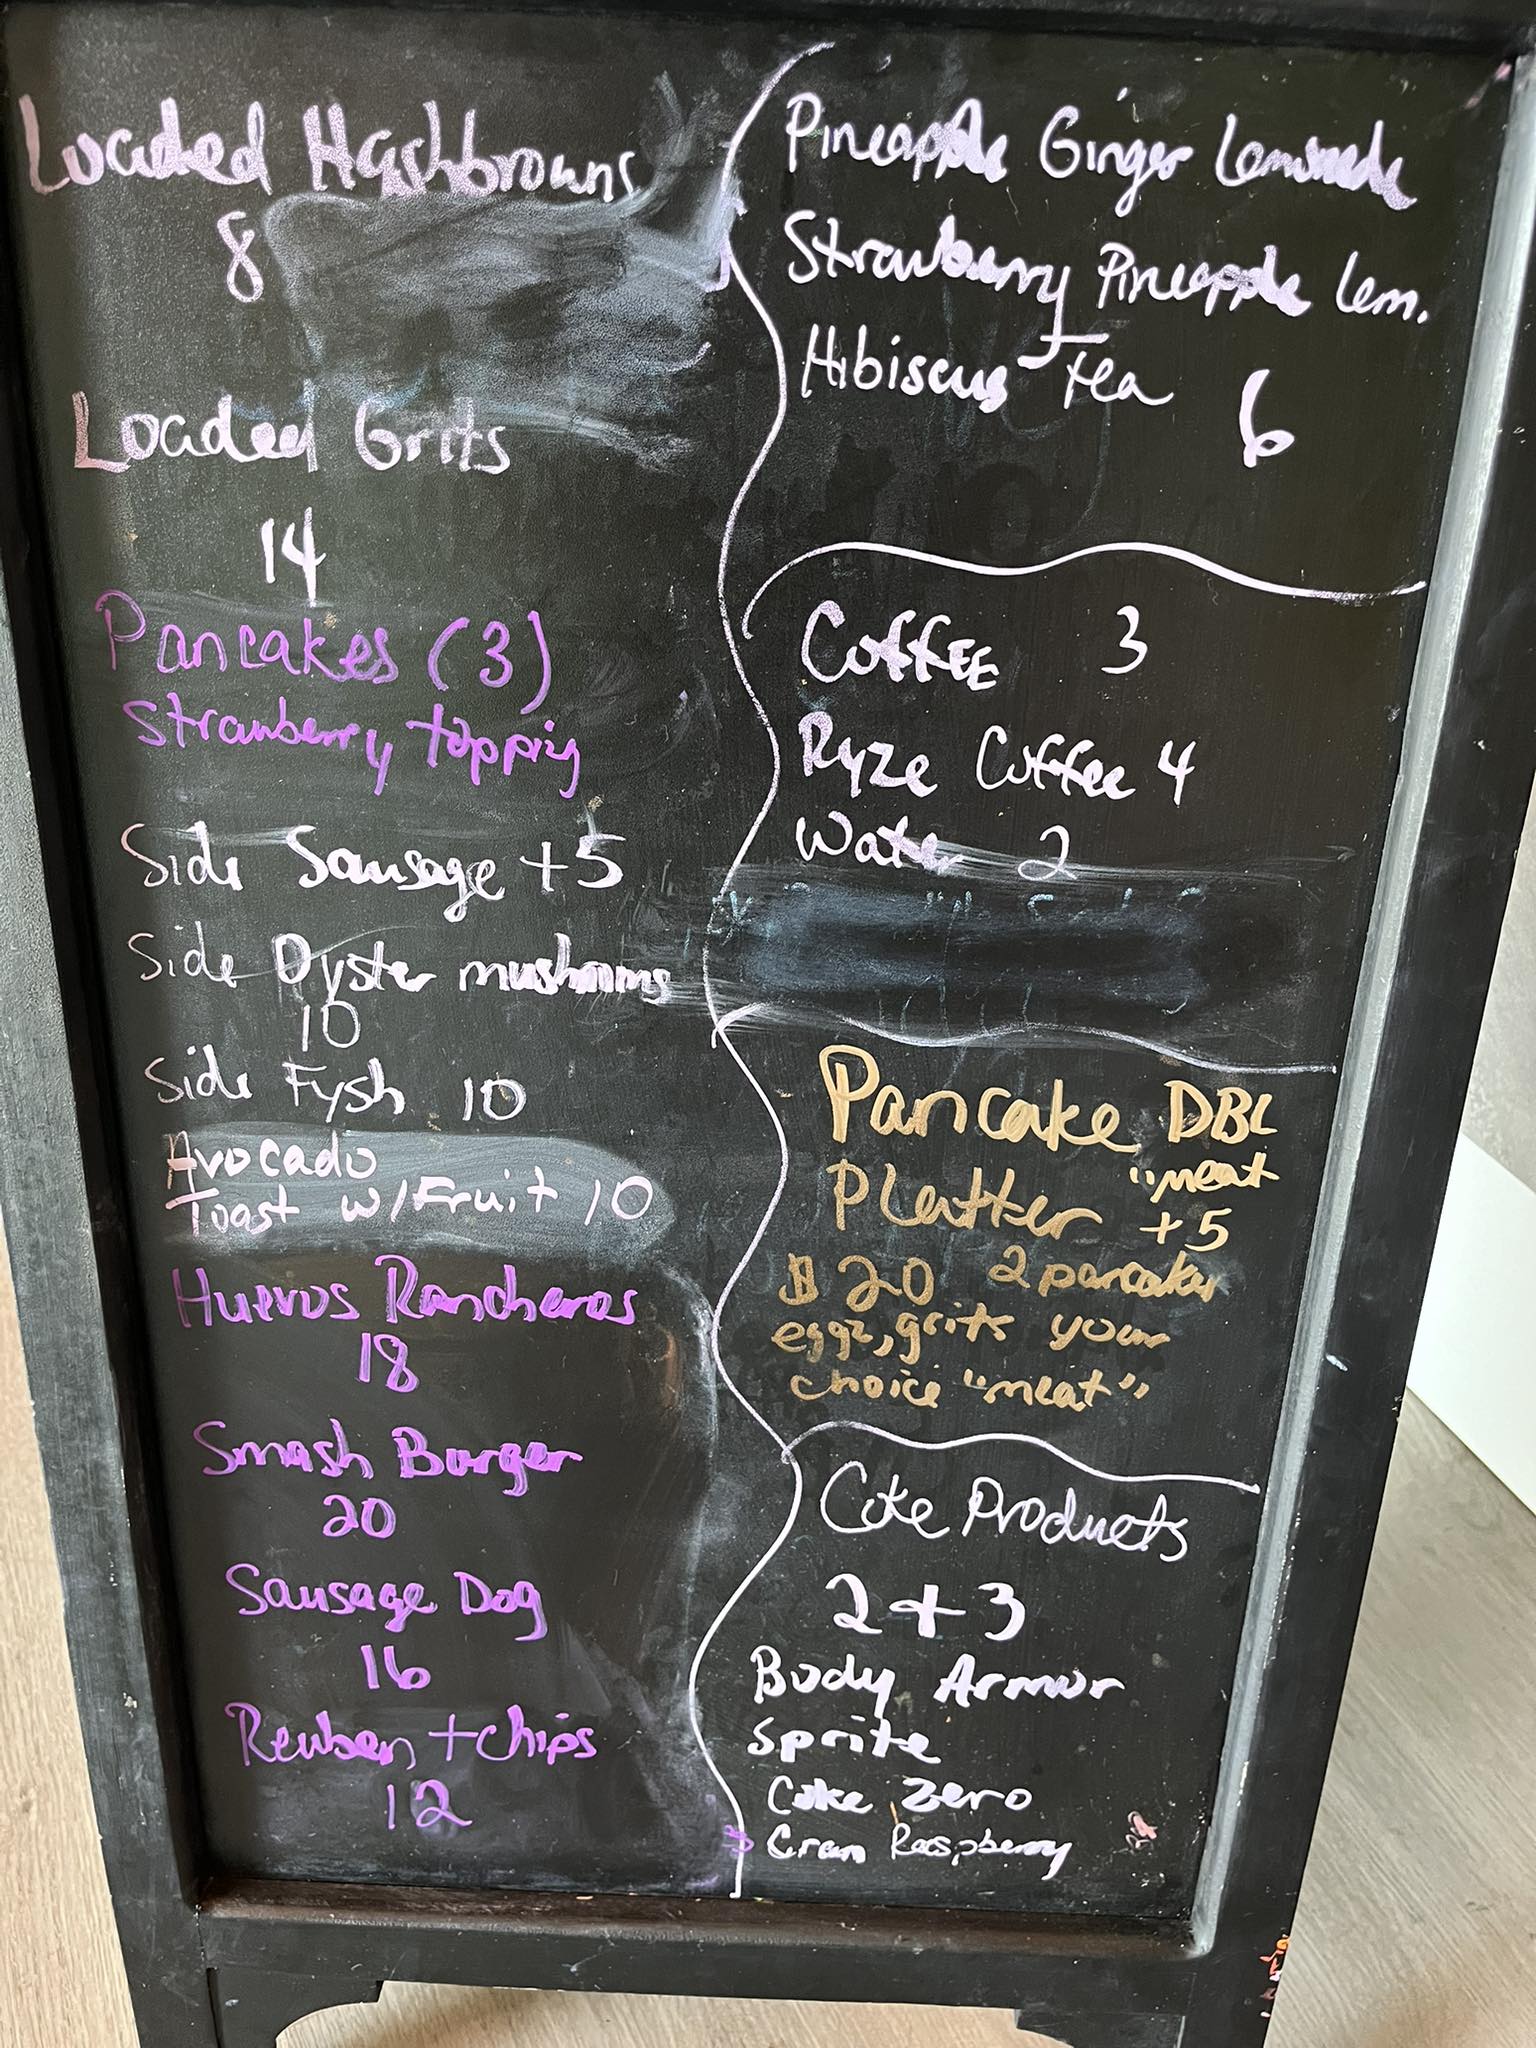 Loaded Hashbrowns
8
Loaded Grits
14
Pancakes (3)
Strawberry topping
Side Sausage +5
Side Oyster mushrooms
10
Side Fysh 10
Avocado
Toast w/Fruit 10
Huevos Rancheros
18
Smash Burger
20
Sausage Dog
16
Reuben + chips
12
Pineapple Ginger Lemonade
Strawberry Pineapple Lem.
Hibiscus Tea 6
Coffee 3
Ryze Coffee 4
Water 2
Pancake DBL
Platter "meat
+5
$20 2 pancakes
eggz, grits your
choice "meat"
Coke Products
2 + 3
Body Armor
Sprite
Coke Zero
Cran Raspberry